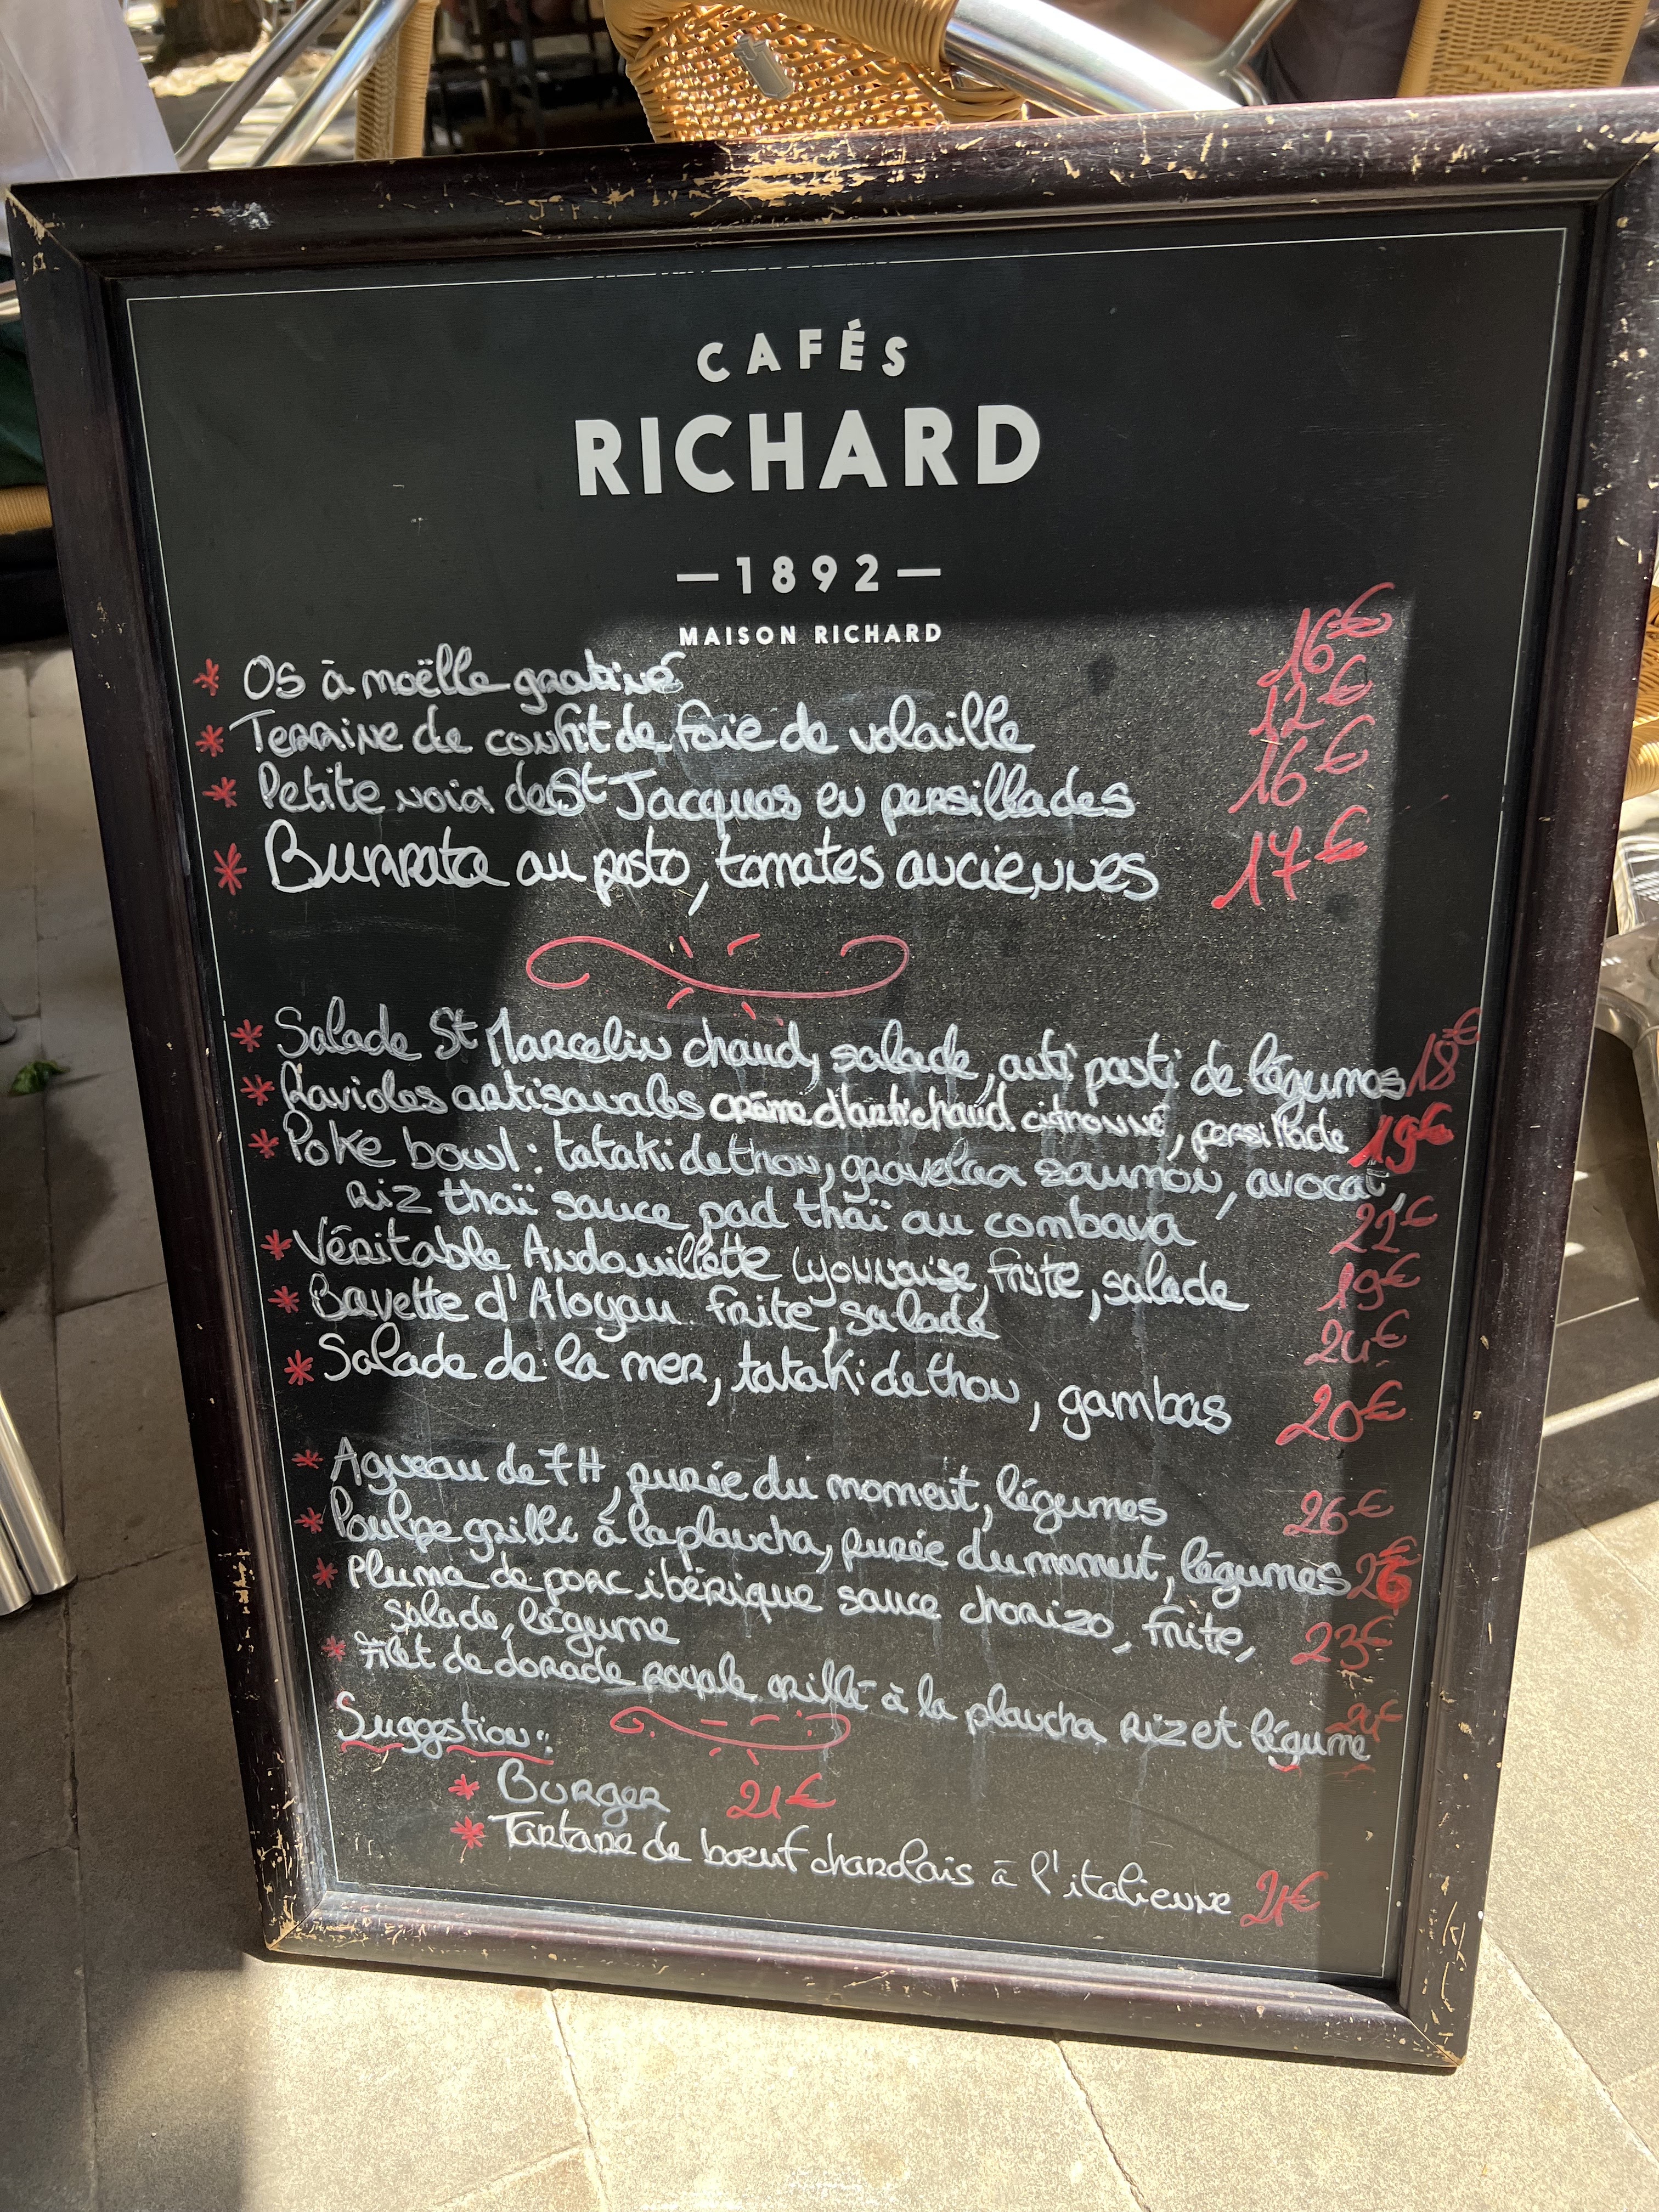 CAFÉS
RICHARD
— 1892 —
MAISON RICHARD
* Os à moëlle gratiné 16€
* Terrine de confit de foie de volaille 12€
* Petite noix de St Jacques en persillades 16€
* Burrata au pesto, tomates anciennes 17€
* Salade St Marcelin chaud, salade, anti pasti de légumes 18€
* Ravioles artisanales crème d'artichaud citronné, persillade 19€
* Poke bowl : tataki de thon, gravelax saumon, avocat,
riz thaï sauce pad thaï au combava 22€
* Véritable Andouillette Lyonnaise, frite, salade 19€
* Bavette d'Aloyau frite, salade 24€
* Salade de la mer, tataki de thon, gambas 20€
* Agneau de 7H, purée du moment, légumes 26€
* Poulpe grillé à la plancha, purée du moment, légumes 26€
* Pluma de porc ibérique sauce chorizo, frite, 23€
salade, légume
* Filet de dorade royale grillé à la plancha riz et légume 24€
Suggestion :
* Burger 21€
* Tartare de boeuf charolais à l'italienne 21€